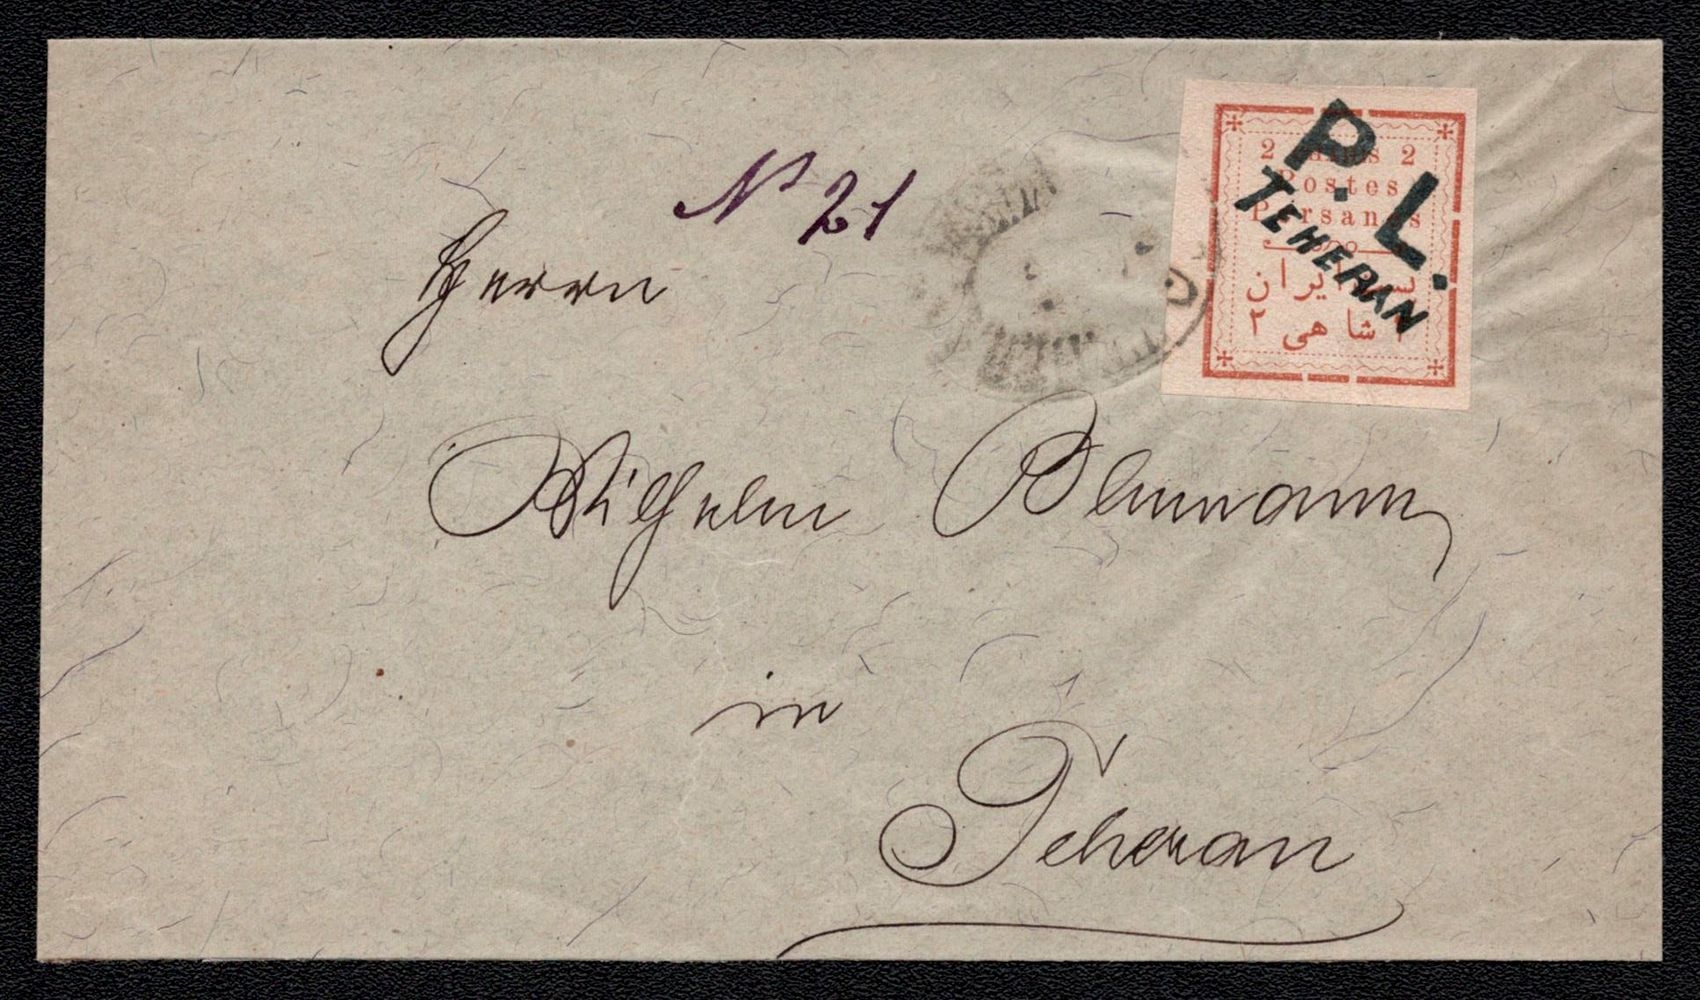 No 21
Herrn
Wilhelm Blumann
in
Teheran
2 2
Postes
Persanes
ایران
۲ شاهی ۲
P. L.
TEHERAN